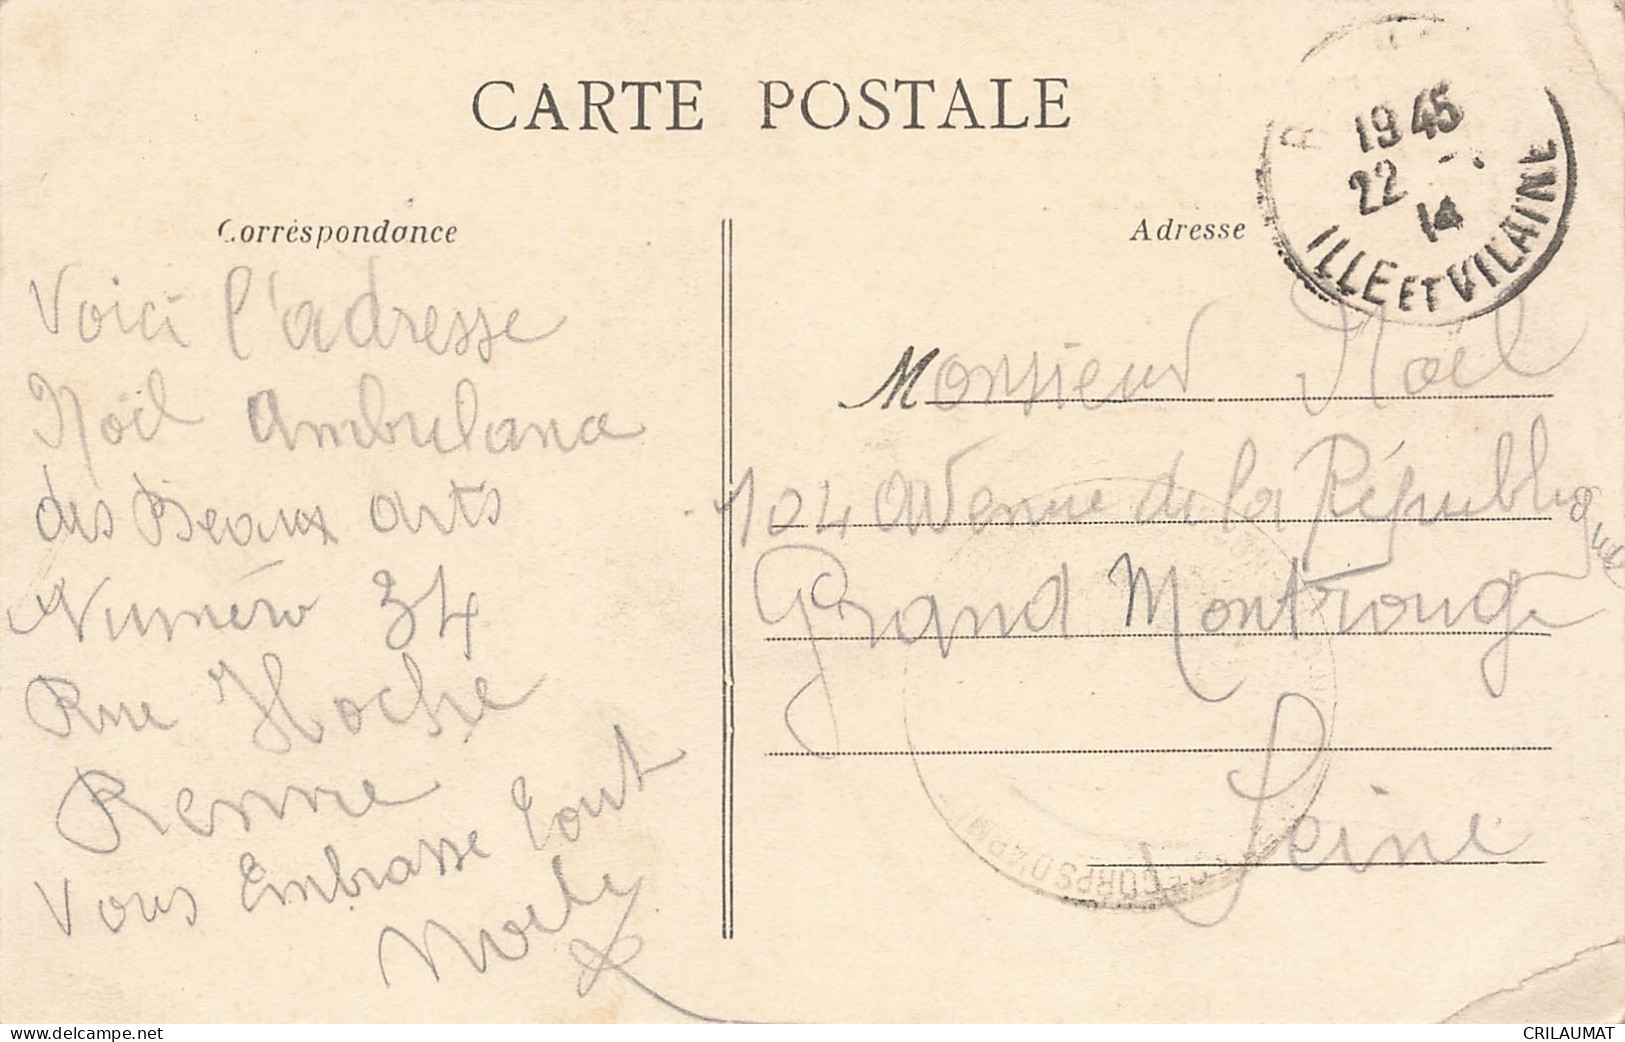 CARTE POSTALE
Correspondance
Voici l'adresse
Noël Ambulance
des Beaux arts
Numéro 34
Rue Hoche
Renne
Vous Embrasse tout
Adresse
19 45
22
14
ILLE ET VILAINE
Monsieur Noël
104 avenue de la République
Grand Montrouge
Seine
CORPS D'ARM
delcampe.net
CRILAUMAT